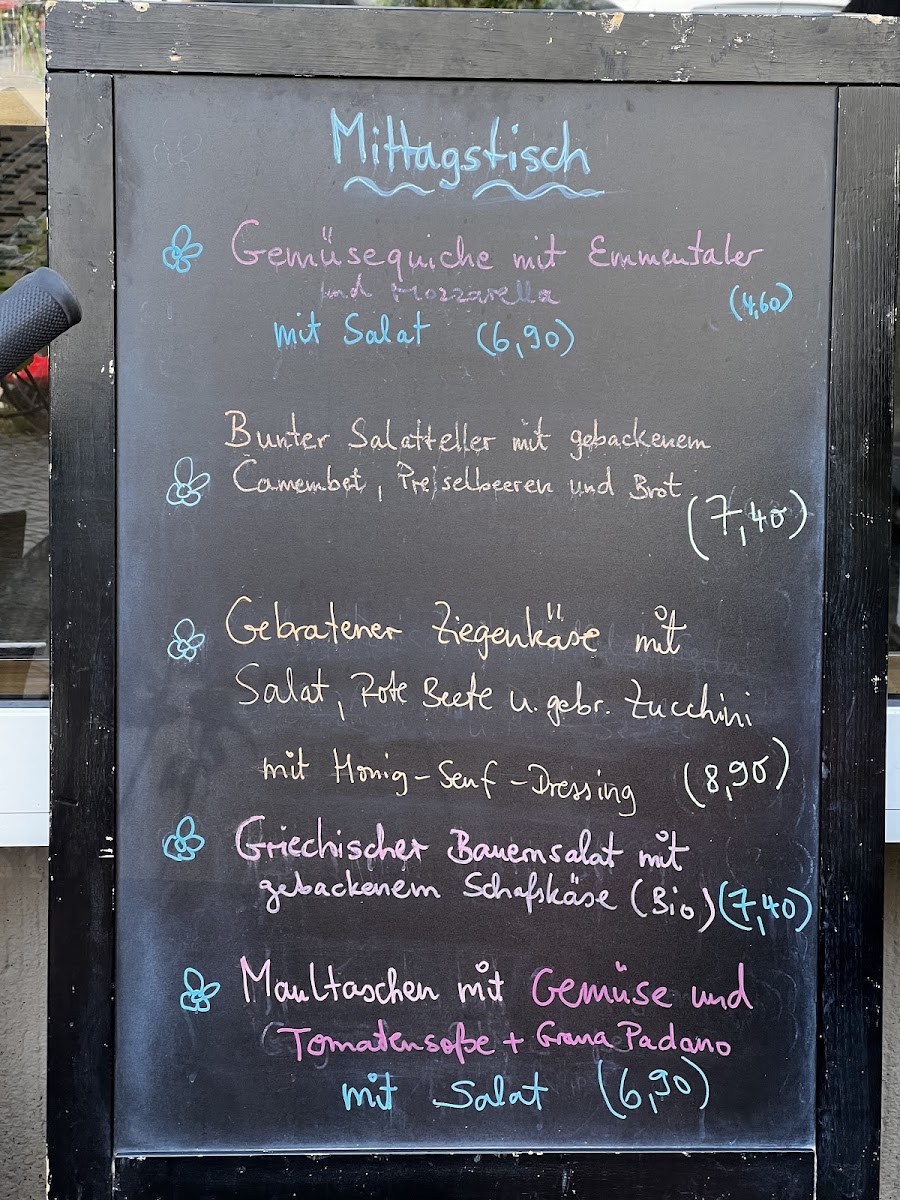 Mittagstisch
Gemüsequiche mit Emmentaler
und Mozzarella (4,60)
mit Salat (6,90)
Bunter Salatteller mit gebackenem
Camembet, Preiselbeeren und Brot
(7,40)
Gebratener Ziegenkäse mit
Salat, Rote Beete u. gebr. Zucchini
mit Honig-Senf-Dressing (8,90)
Griechischer Bauernsalat mit
gebackenem Schafskäse (Bio) (7,40)
Maultaschen mit Gemüse und
Tomatensoße + Grana Padano
mit Salat (6,90)